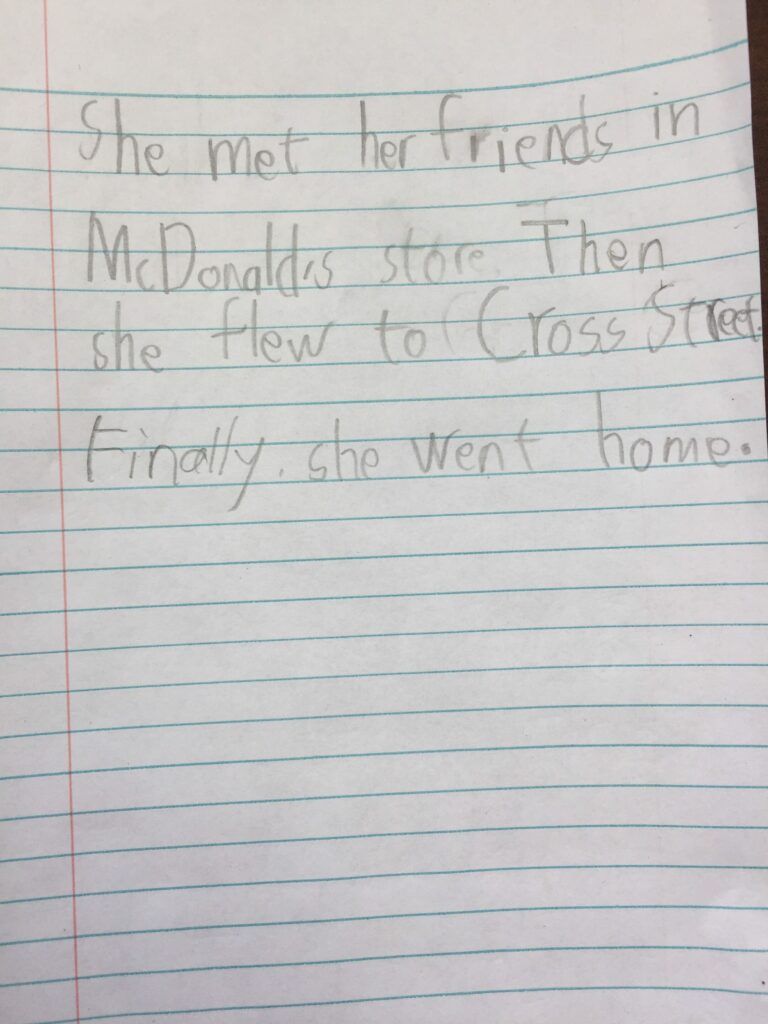 She met her friends in
McDonald's store. Then
she flew to Cross Street.
Finally, she went home.